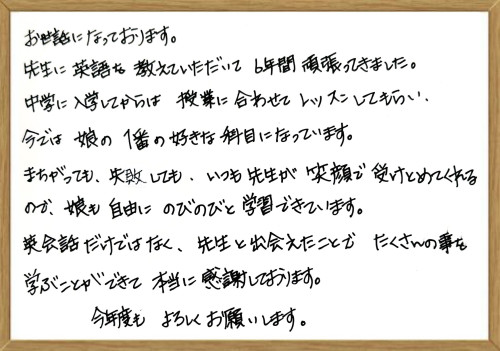 お世話になっております。
先生に英語を教えていただいて6年間頑張ってきました。
中学に入学してからは授業に合わせてレッスンしてもらい、
今では娘の1番の好きな科目になっています。
まちがっても、失敗しても、いつも先生が笑顔で受けとめてくれる
ので、娘も自由にのびのびと学習できています。
英会話だけではなく、先生と出会えたことでたくさんの事を
学ぶことができて本当に感謝しております。
今年度もよろしくお願いします。